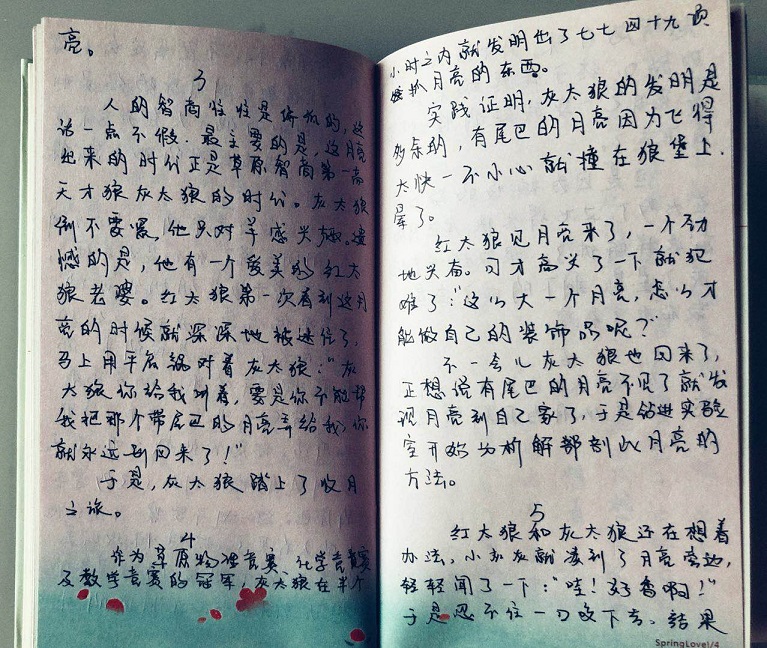 亮。
3
人的智商往往是偏低的，这
话一点不假。最主要的是，这月亮
出来的时代正是草原智商第一高
天才狼灰太狼的时代。灰太狼
倒不要紧，他只对羊感兴趣。遗
憾的是，他有一个爱美的红太
狼老婆。红太狼第一次看到这月
亮的时候就深深地被迷住了，
马上用平底锅对着灰太狼："灰
太狼你给我听着，要是你不能帮
我把那个带尾巴的月亮弄给我，你
就永远别回来了！"
于是，灰太狼踏上了收月
之旅。
4
作为草原物理竞赛，化学竞赛
及数学竞赛的冠军，灰太狼在半个
小时之内就发明出了七七四十九项
月亮的东西。
实践证明，灰太狼的发明是
多余的，有尾巴的月亮因为飞得
太快一不小心就撞在狼堡上，
晕了。
红太狼见月亮来了，一个劲
地兴奋。可才高兴了一下就犯
难了："这么大一个月亮，怎么才
能做自己的装饰品呢？"
不一会儿灰太狼也回来了，
正想说有尾巴的月亮不见了就发
现月亮到自己家了，于是钻进实验
室开始分析解部剖此月亮的
方法。
5
红太狼和灰太狼还在想着
办法，小灰灰就凑到了月亮旁边，
轻轻闻了一下："哇！好香啊！"
于是忍不住一口咬下去。结果
SpringLove1/4